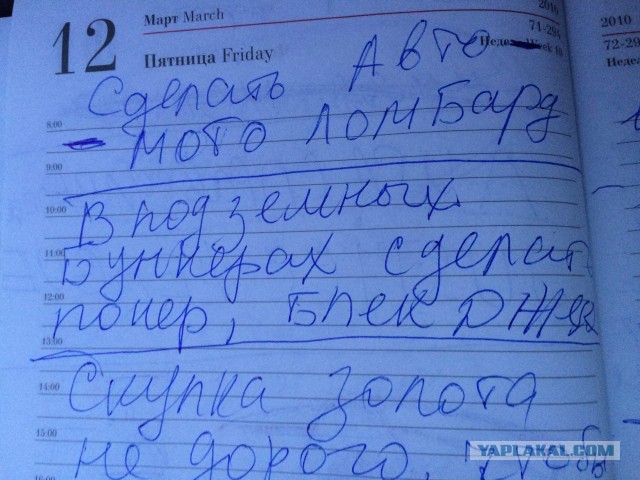 12
Март March
Пятница Friday
2010
71-294
Недел Week 10
2010
Сделать Авто-
- мото ломбард
В подземных
Бункерах сделать
покер, Блек Джек
Скупка золота
не дорого,
8:00
9:00
10:00
11:00
12:00
13:00
14:00
15:00
16:00
YAPLAKAL.COM